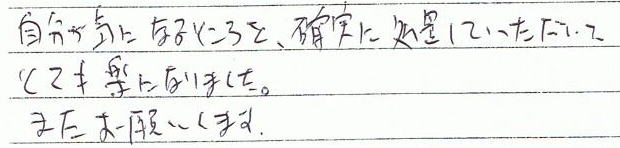 自分が気になるところを、確実に処置していただいて
とても楽になりました。
またお願いします。